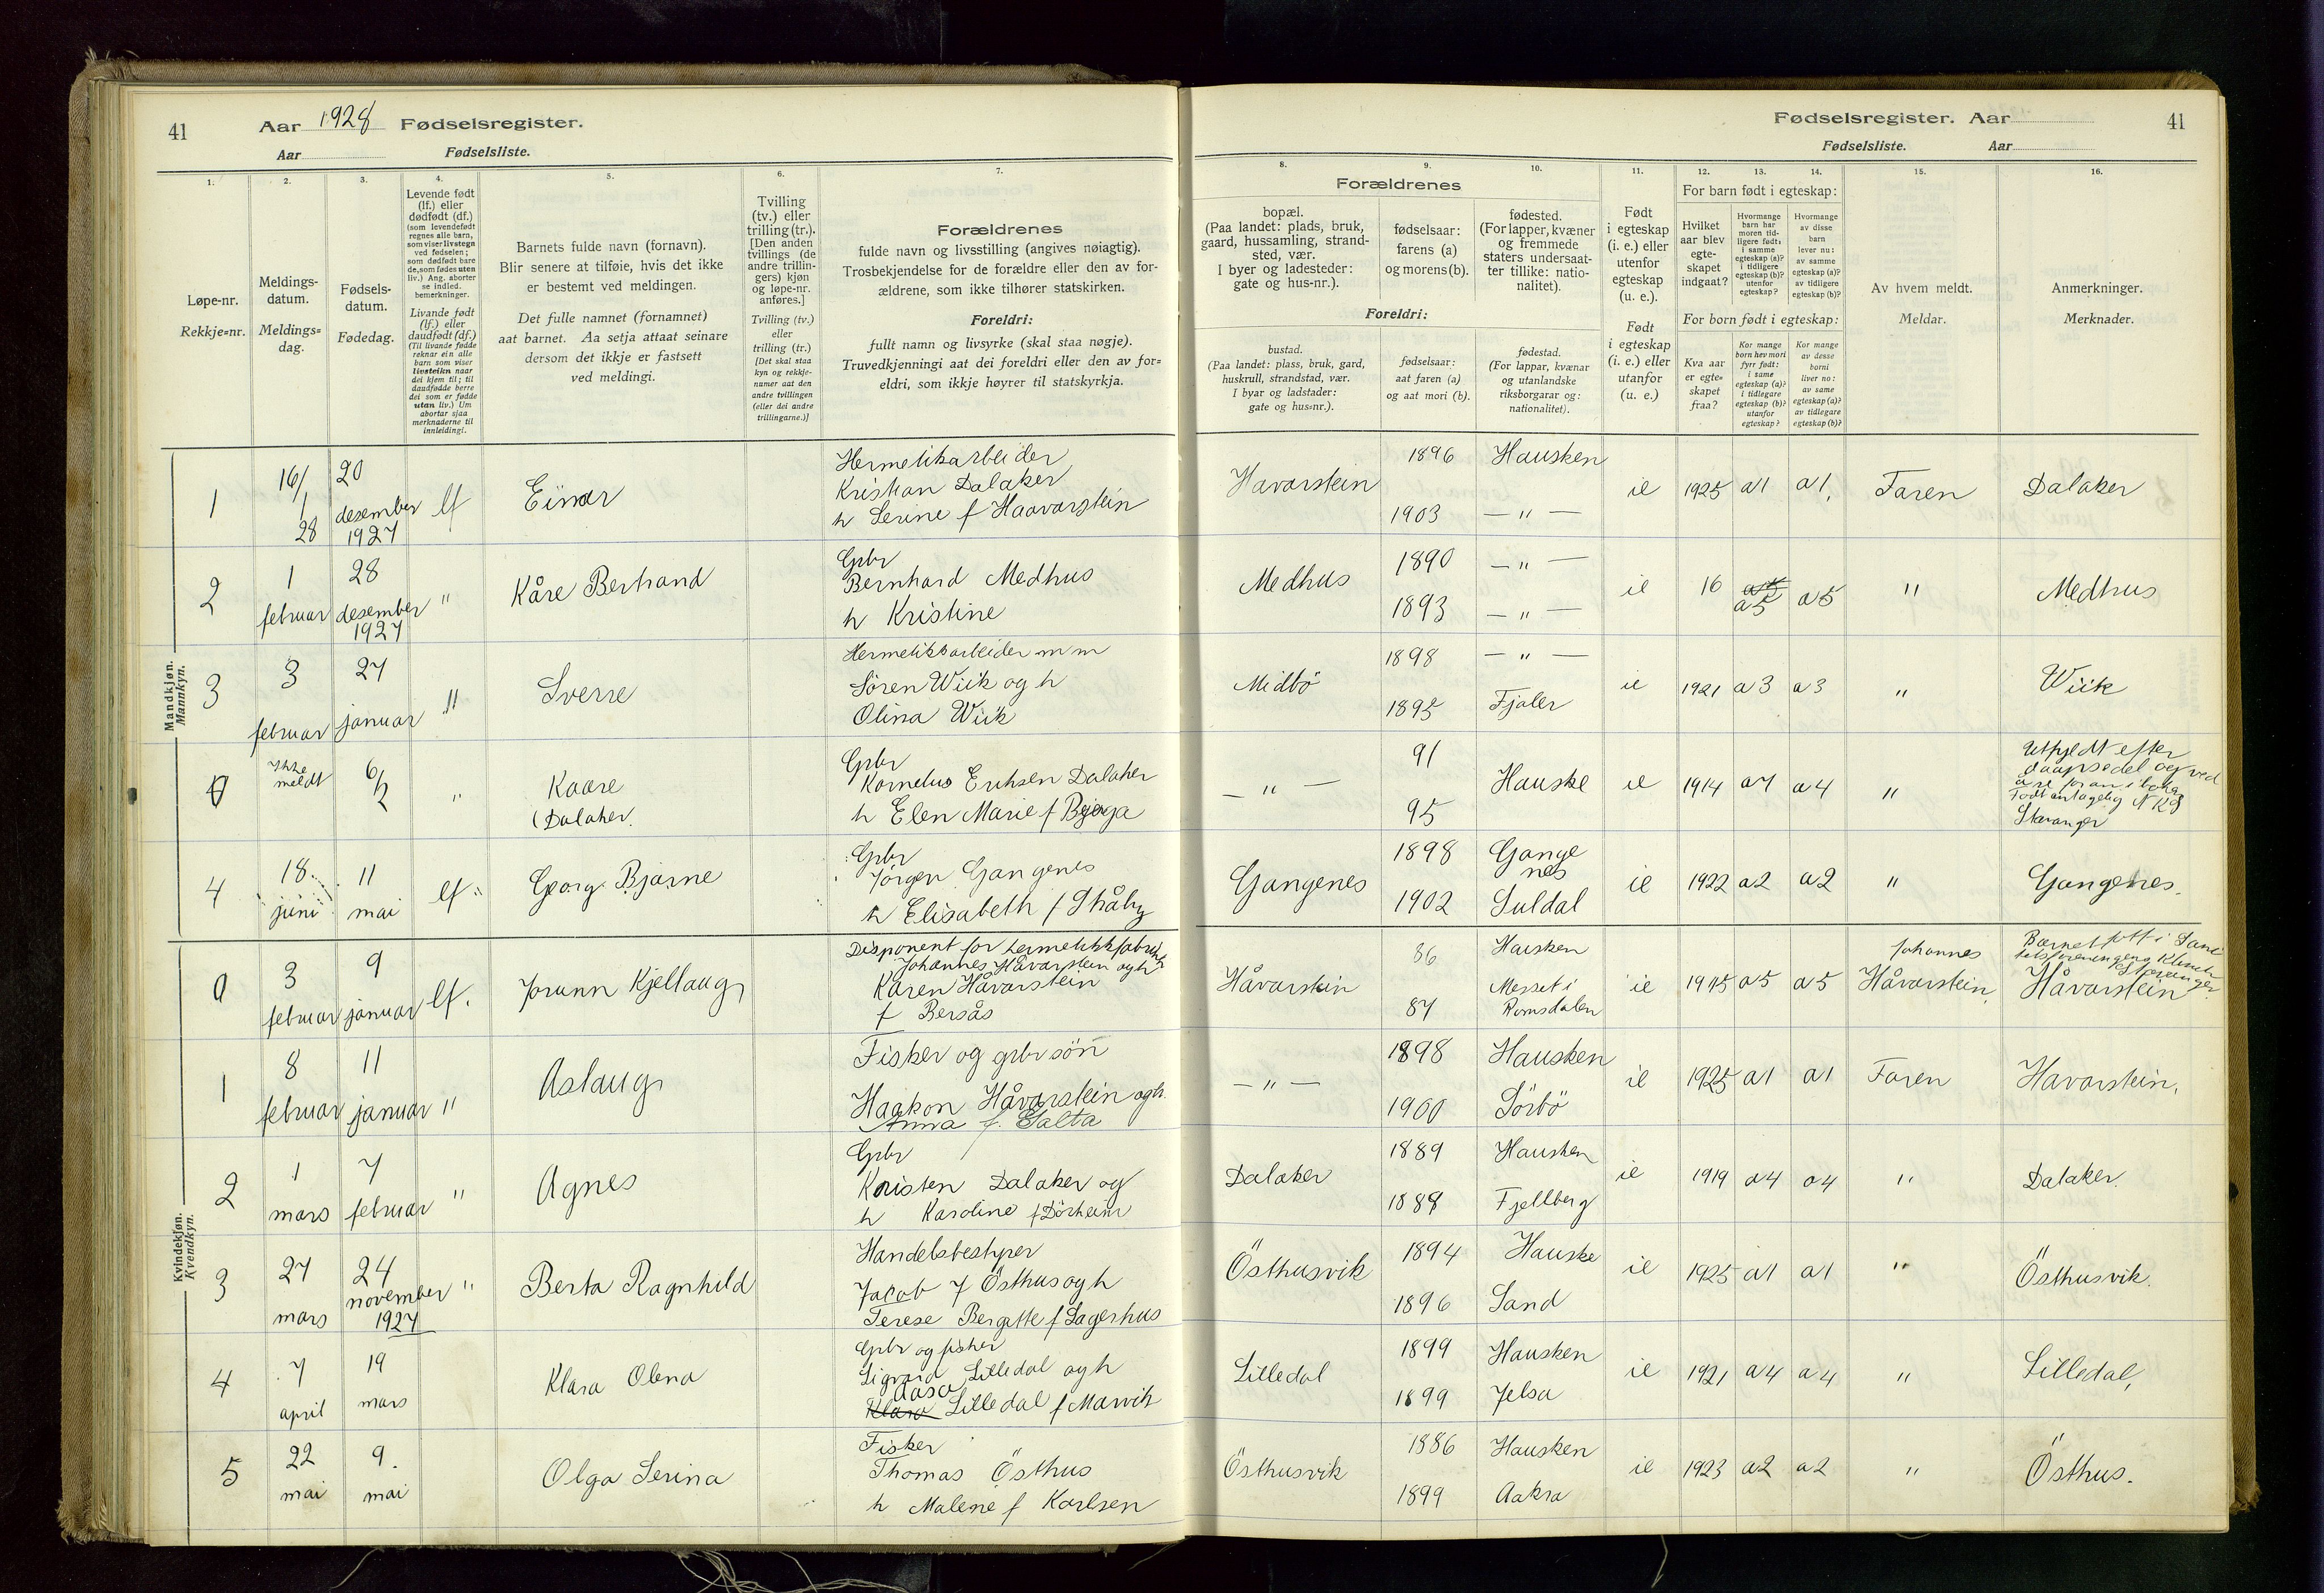 41 Aar 1928 Fødselsregister.
Aar Fødselsliste.
1. 2. 3. 4. 5. 6. 7.
Løpe-nr.
Rekkje=nr.
Meldings-
datum.
Meldings=
dag.
Fødsels-
datum.
Fødedag.
Levende født
(lf.) eller
dødfødt (df.)
(som levendefødt
regnes alle barn,
som viser livstegn
ved fødselen;
som dødfødt bare
de, som fødes uten
liv.) Ang. aborter
se indled.
bemerkninger.
Livande født
(lf.) eller
daudfødt (df.)
(Til livande fødde
reknar ein alle
barn som viser
livsteikn naar
dei kjem til; til
daudfødde berre
dei som er fødde
utan liv.) Um
abortar sjaa
merknaderne til
innleidingi.
Barnets fulde navn (fornavn).
Blir senere at tilføie, hvis det ikke
er bestemt ved meldingen.
Det fulle namnet (fornamnet)
aat barnet. Aa setja attaat seinare
dersom det ikkje er fastsett
ved meldingi.
Tvilling
(tv.) eller
trilling (tr.).
[Den anden
tvillings (de
andre trillin-
gers) kjøn
og løpe-nr.
anføres.]
Tvilling (tv.)
eller
trilling (tr.)
[Det skal staa
kyn og rekkje-
numer aat den
andre tvillingen
(eller dei andre
trillingarne.)]
Forældrenes
fulde navn og livsstilling (angives nøiagtig).
Trosbekjendelse for de forældre eller den av for-
ældrene, som ikke tilhører statskirken.
Foreldri:
fullt namn og livsyrke (skal staa nøgje).
Truvedkjenningi aat dei foreldri eller den av for=
eldri, som ikkje høyrer til statskyrkja.
Fødselsregister. Aar 41
Fødselsliste. Aar
8. 9. 10. 11. 12. 13. 14. 15. 16.
Forældrenes
bopæl.
(Paa landet: plads, bruk,
gaard, hussamling, strand-
sted, vær.
I byer og ladesteder:
gate og hus-nr.).
fødselsaar:
farens (a)
og morens (b).
fødested.
(For lapper, kvæner
og fremmede
staters undersaat-
ter tillike: natio-
nalitet).
Foreldri:
bustad.
(Paa landet: plass, bruk, gard,
huskrull, strandstad, vær.
I byar og ladstader:
gate og hus=nr.).
fødselsaar:
aat faren (a)
og aat mori (b).
fødestad.
(For lappar, kvænar
og utanlandske
riksborgarar og:
nationalitet).
Født
i egteskap
(i. e.) eller
utenfor
egteskap
(u. e.).
Født
i egteskap
(i. e.) eller
utanfor
(u. e.)
For barn født i egteskap:
Hvilket
aar blev
egte-
skapet
indgaat?
Hvormange
barn har
moren tid-
ligere født:
i samme
egteskap (a)?
i tidligere
egteskap (b)?
utenfor
egteskap?
Hvormange
av disse
barn
lever nu:
av samme
egteskap (a)?
av tidligere
egteskap (b)?
For born født i egteskap:
Kva aar
er egte=
skapet
fraa?
Kor mange
born hev mori
fyrr født:
i same
egteskap (a)?
i tidlegare
egteskap (b)?
utanfor
egteskap?
Kor mange
av desse
borni
liver no:
av same
egteskap (a)?
av tidlegare
egteskap (b)?
Av hvem meldt.
Meldar.
Anmerkninger.
Merknader.
Mandkjøn.
Mannkyn.
1 16/1 28 20 desember 1927 lf Einar
Hermetikarbeider
Kristian Dalaker
h Serine f Haavarstein
Havarstein 1896 Hausken
1903 — " —
ie 1925 a1 a1, Faren Dalaker
2 1 februar 28 desember 1927 " Kåre Bertrand
Grbr
Bernhard Medhus
h Kristine
Medhus 1890 — " —
1893 — " —
ie 16 a5 a5 " Medhus
3 3 februar 27 januar " Sverre
Hermetikkarbeider m m
Sören Wiik og h
Olina Wiik
Midbö 1898 — " —
1895 Fjaler
ie 1921 a3 a3 " Wiik
0 Ikke meldt 6/2 " Kaare
(Dalaker.
Grbr
Kornelus Eriksen Dalaker
h Elen Marie f
— " — 91 Hauske
95
ie 1914 a7 a4 "
Utfyldt efter
daapsedel og ved
Født antagelig
Stavanger
4 18. juni 11 mai lf " Georg Bjarne
Grbr
Jörgen Gangenes
h Elisabeth f Shåby
Gangenes 1898 Gange
nes
1902 Suldal
ie 1922 a2 a2 " Gangenes.
Kvindekjøn.
Kvendkyn.
0 3 februar 9 januar lf. Jorunn Kjellaug
Disponent for hermetikkfabrikk
Johannes Håvarstein og h
Karen Håvarstein
f Bersås
Håvarstein 86 Hausken
87 Messet i
Romsdalen
ie 1915 a5 a5 Johannes
Håvarstein,
Barnet född i Sani
tetsforeningens Klinik
Stavanger.
Håvarstein
1 8 februar 11 januar " Aslaug
Fisker og grbr sön
Haakon Håvarstein og h.
Anna f. Galta
— " — 1898 Hausken
1900 Sörbö
ie 1925 a1 a1 Faren Havarstein.
2 1 mars 7 februar " Agnes
Grbr
Kristen Dalaker og
h Karoline f Dörheim
Dalaker 1889 Hausken
1889 Fjellberg
ie 1919 a4 a4 " Dalaker.
3 27 mars 24 november 1927 " Berta Ragnhild
Handelsbestyrer
Jacob J Östhus og h
Terese Bergitte f Lagerhus
Östhusvik 1894 Hauske
1896 Sand
ie 1925 a1 a1 " Östhusvik.
4 7 april 19 mars Klara Olena
Grbr og fisker
Sigvard Lilledal og h
Aasa
Klara Lilledal f Marvik
Lilledal 1899 Hausken
1899 Jelsa
ie 1921 a4 a4 " Lilledal,
5 22 mai 9. mai Olga Serina
Fisker
Thomas Östhus
h Malene f Karlsen
Östhusvik 1886 Hausken
1899 Aakra
ie 1923 a2 a2 " Östhus.